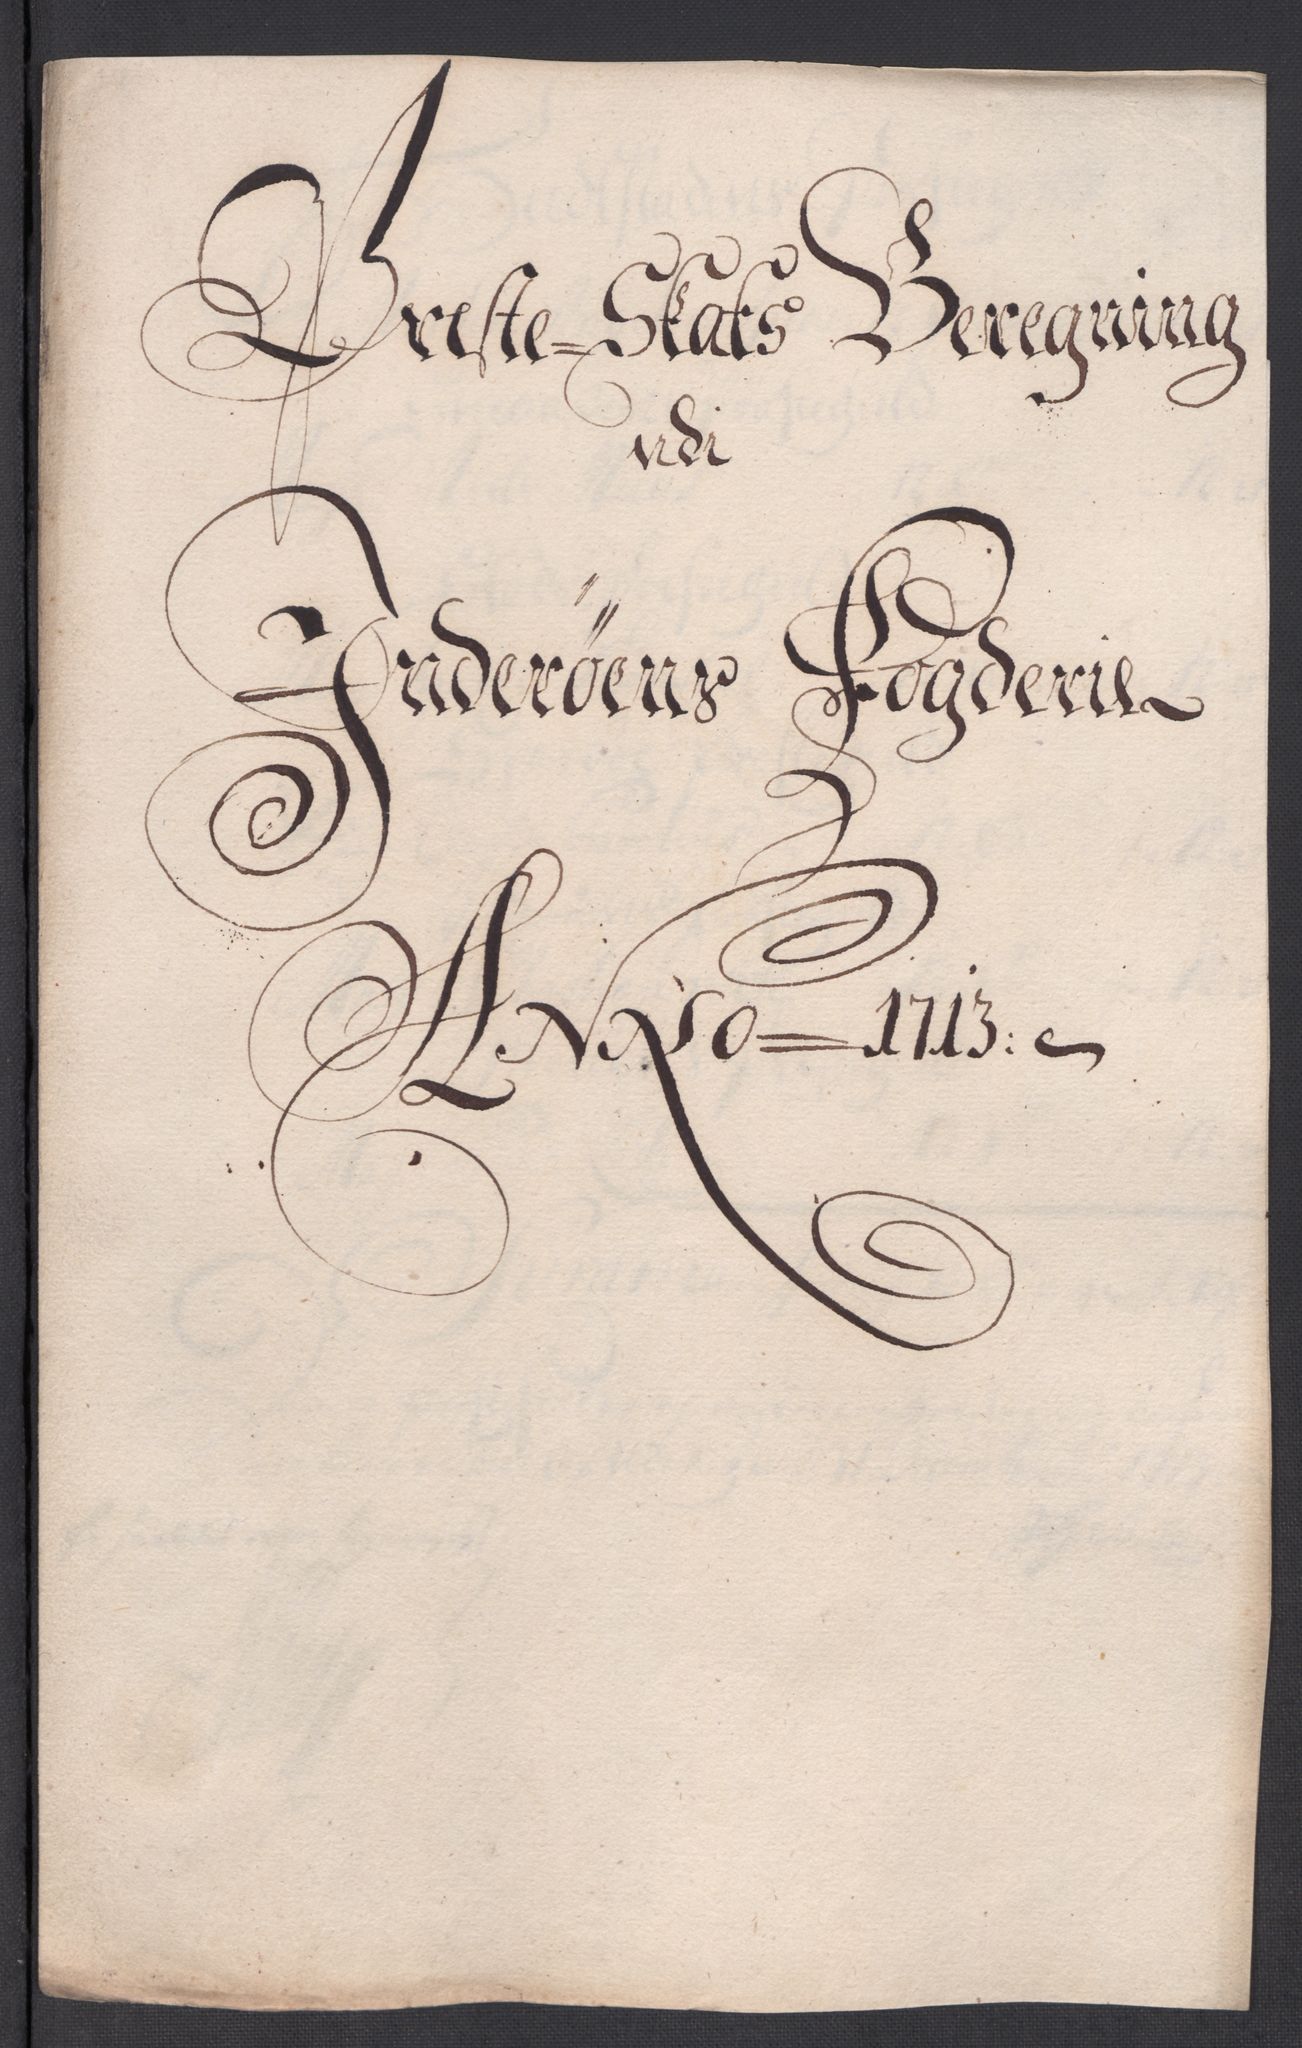 Preste-Skats Beregning
udi
Inderöens Fogderie
ANNO 1713: